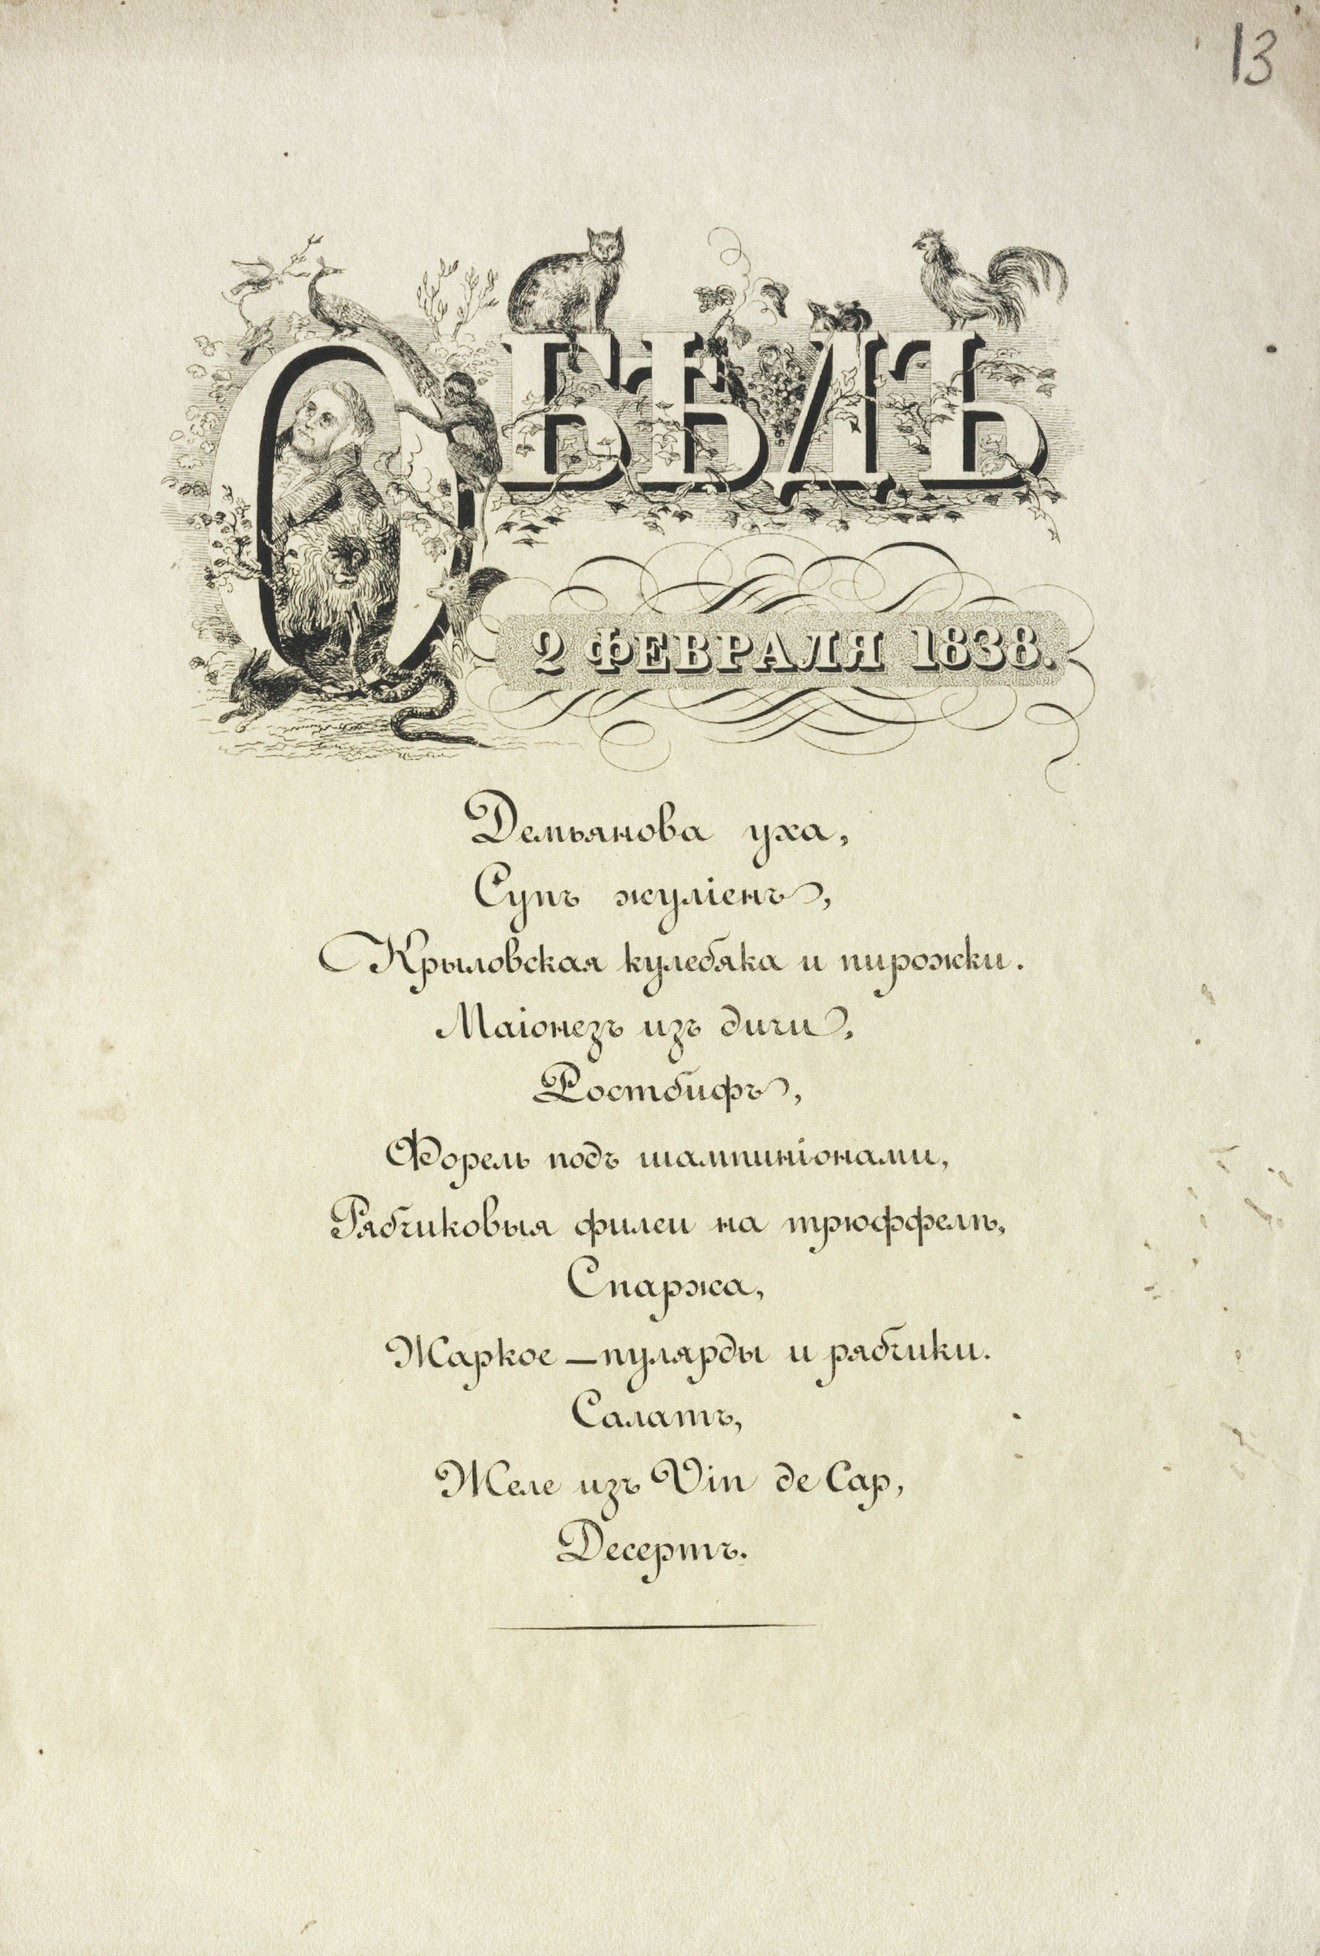 13
ОБѢДЪ
2 ФЕВРАЛЯ 1838.
Демьянова уха,
Супъ жуліенъ,
Крыловская кулебяка и пирожки.
Маіонезъ изъ дичи,
Ростбифъ,
Форель подъ шампиніонами,
Рябчиковыя филеи на трюффелѣ,
Спаржа,
Жаркое — пулярды и рябчики.
Салатъ,
Желе изъ Vin de Cap,
Десертъ.